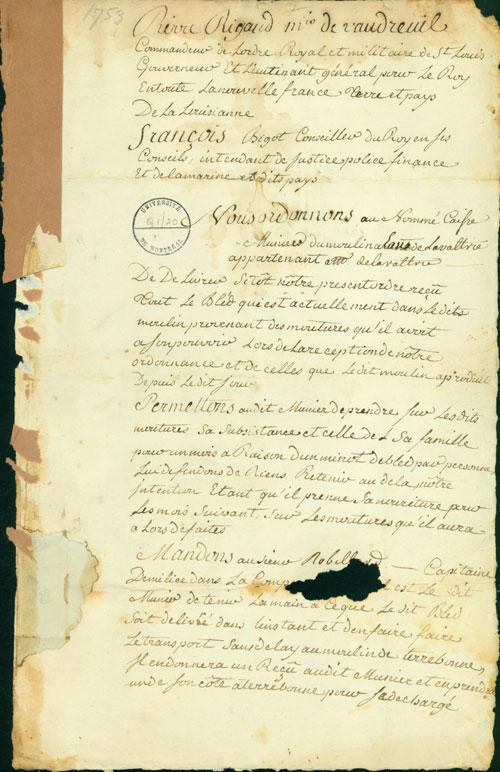 1753
Pierre Rigaud m.is de vaudreuil
Commandeur de Lordre Royal et militaire de St Louis
Gouverneur Et Lieutenant général pour Le Roy
En toute La nouvelle france terre et pays
De La Louisianne
françois Bigot Conseiller du Roy en ses
Conseils, intendant de justice police finance
Et de la marine es dits pays
UNIVERSITÉ
G1/20
DE MONTRÉAL
Nous ordonnons au Nommé
Munier du moulin a de Lavaltrie
appartenant a Mr delavaltrie
De De Livrer Sitot notre present ordre reçu
tout Le Bled qui est actuellement dans Le dits
moulin provenant des moutures qu'il avoit
a son pouvoir Lors de La reception de notre
ordonnance et de celles que Le dit moulin a produit
Depuis Le dit jour
Permettons audit Munier de prendre sur Les dits
moutures Sa Subsistance et celle de Sa famille
pour un mois a Raison d'un minot de bled par personne
Lui defendons de Riens Retenir au dela, notre
intention Etant qu'il prenne Sa nouriture pour
Les mois Suivant, Sur Les moutures qu'il aura
a Lors de faites
Mandons au Sieur Robillard Capitaine
De milice dans La Comp est Le dit
Munier de tenir La main a ceque Le dit Bled
Soit delivré dans Linstant et d'en faire faire
Le transport Sans delay au moulin de terrebonne,
Il en donnera un Reçu audit Munier et en prendra
un de son côté a terrebonne pour sa decharge